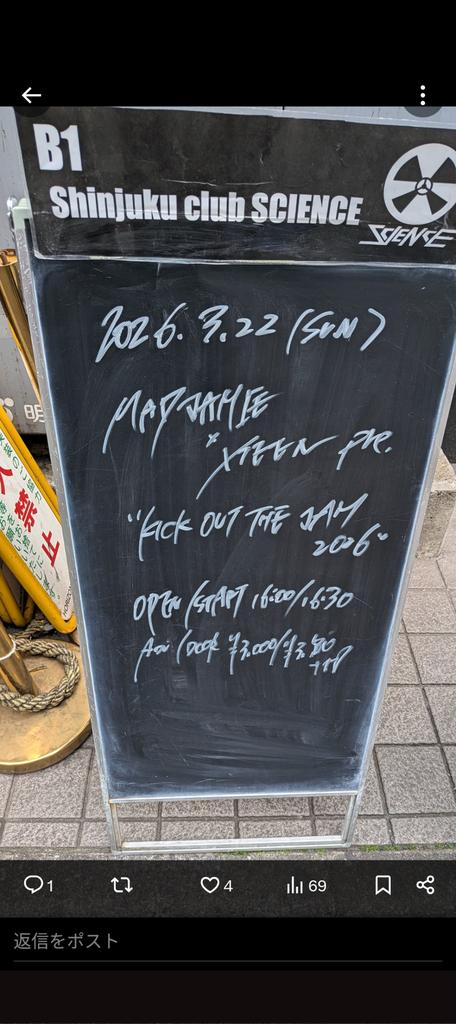 B1
Shinjuku club SCIENCE
SCIENCE
2026.3.22 (SUN)
MAD JAMIE
×
XTEEN pre.
"KICK OUT THE JAM
2026"
OPEN/START 16:00/16:30
Adv/Door ¥3,000/¥3,500
+1D
明
禁止
1
4
69
返信をポスト